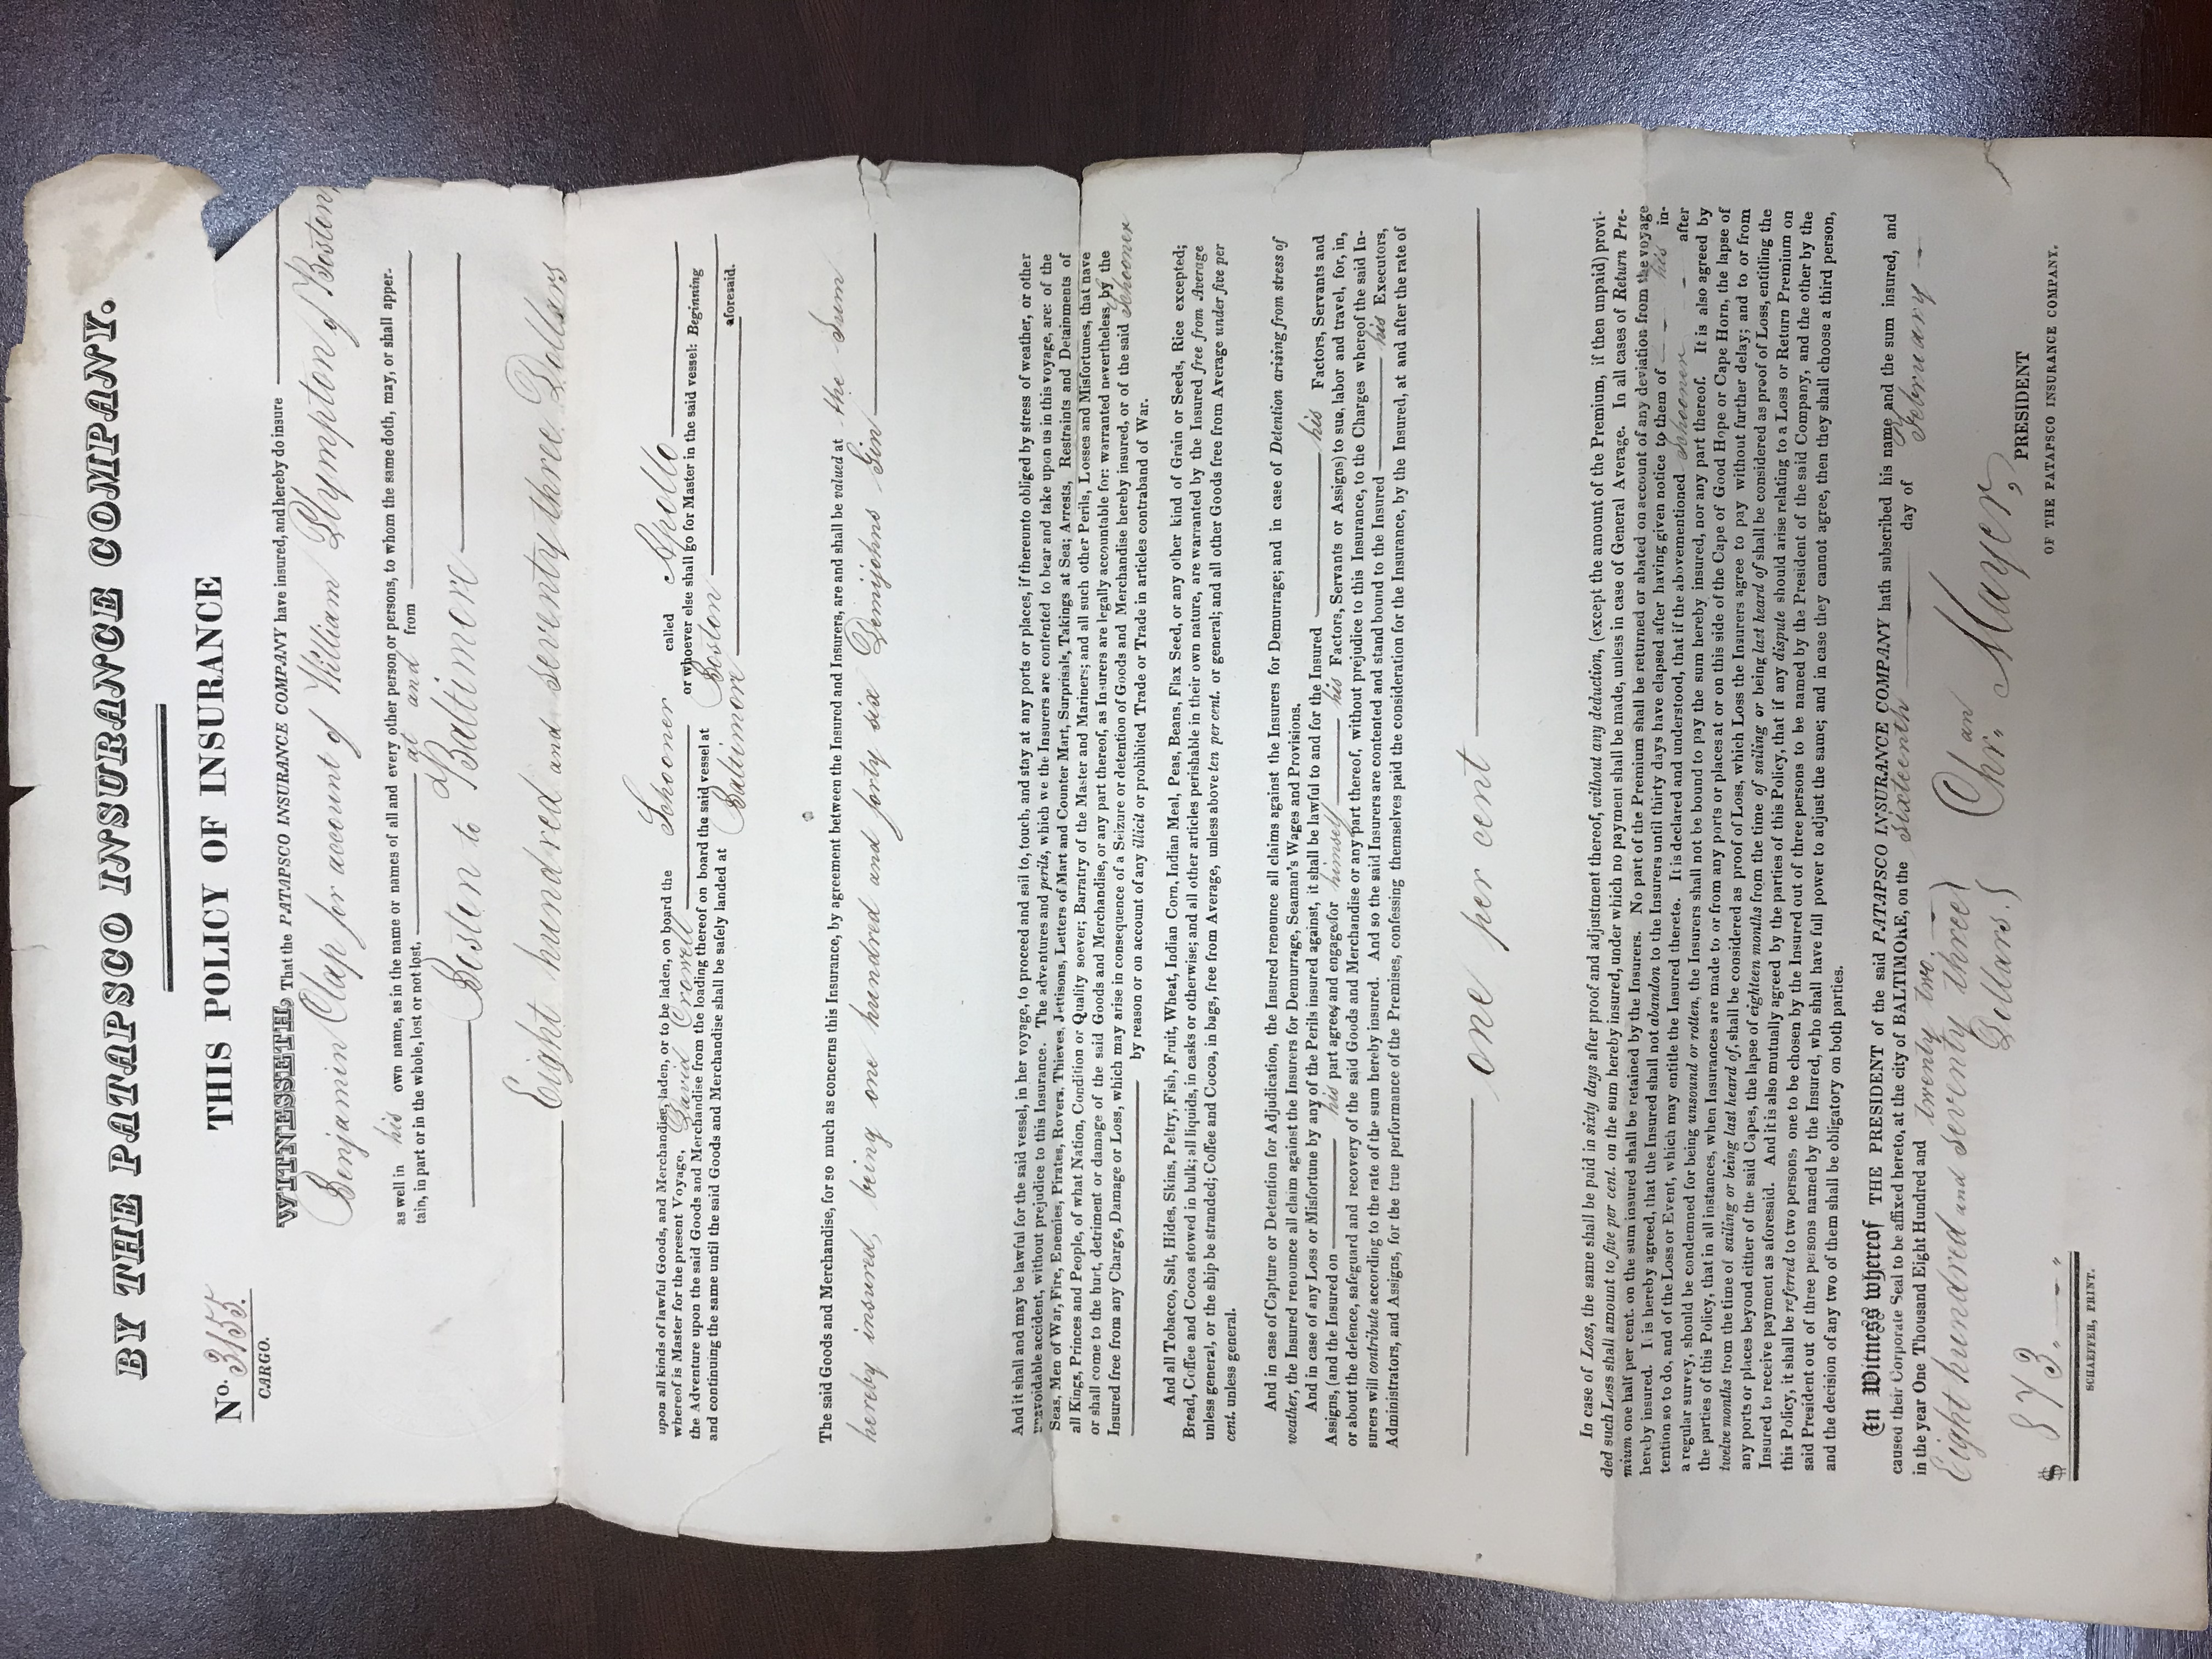 BY THE PATAPSCO INSURANCE COMPANY.
THIS POLICY OF INSURANCE
No. 3155
CARGO.
WITNESSETH, That the PATAPSCO INSURANCE COMPANY have insured, and hereby do insure
Benjamin Clap for account of William Plympton of Boston
as well in his own name, as in the name or names of all and every other person or persons, to whom the same doth, may, or shall apper-
tain, in part or in the whole, lost or not lost, at and from
Boston to Baltimore
Eight hundred and seventy three Dollars
upon all kinds of lawful Goods, and Merchandise, laden, or to be laden, on board the Schooner called Apollo
whereof is Master for the present Voyage, David Crowell or whoever else shall go for Master in the said vessel: Beginning
the Adventure upon the said Goods and Merchandise from the loading thereof on board the said vessel at Boston
and continuing the same until the said Goods and Merchandise shall be safely landed at Baltimore aforesaid.
The said Goods and Merchandise, for so much as concerns this Insurance, by agreement between the Insured and Insurers, are and shall be valued at the Sum
hereby insured, being one hundred and forty six Demijohns Gin
And it shall and may be lawful for the said vessel, in her voyage, to proceed and sail to, touch, and stay at any ports or places, if thereunto obliged by stress of weather, or other
unavoidable accident, without prejudice to this Insurance. The adventures and perils, which we the Insurers are contented to bear and take upon us in this voyage, are: of the
Seas, Men of War, Fire, Enemies, Pirates, Rovers, Thieves, Jettisons, Letters of Mart and Counter Mart, Surprisals, Takings at Sea; Arrests, Restraints and Detainments of
all Kings, Princes and People, of what Nation, Condition or Quality soever; Barratry of the Master and Mariners; and all such other Perils, Losses and Misfortunes, that have
or shall come to the hurt, detriment or damage of the said Goods and Merchandise, or any part thereof, as Insurers are legally accountable for: warranted nevertheless by the
Insured free from any Charge, Damage or Loss, which may arise in consequence of a Seizure or detention of Goods and Merchandise hereby insured, or of the said Schooner
by reason or on account of any illicit or prohibited Trade or Trade in articles contraband of War.
And all Tobacco, Salt, Hides, Skins, Peltry, Fish, Fruit, Wheat, Indian Corn, Indian Meal, Peas, Beans, Flax Seed, or any other kind of Grain or Seeds, Rice excepted;
Bread, Coffee and Cocoa stowed in bulk; all liquids, in casks or otherwise; and all other articles perishable in their own nature, are warranted by the Insured free from Average
unless general, or the ship be stranded; Coffee and Cocoa, in bags, free from Average, unless above ten per cent. or general; and all other Goods free from Average under five per
cent. unless general.
And in case of Capture or Detention for Adjudication, the Insured renounce all claims against the Insurers for Demurrage; and in case of Detention arising from stress of
weather, the Insured renounce all claim against the Insurers for Demurrage, Seaman's Wages and Provisions.
And in case of any Loss or Misfortune by any of the Perils insured against, it shall be lawful to and for the Insured his Factors, Servants and
Assigns, (and the Insured on his part agree and engage for himself his Factors, Servants or Assigns) to sue, labor and travel, for, in,
or about the defence, safeguard and recovery of the said Goods and Merchandise or any part thereof, without prejudice to this Insurance, to the Charges whereof the said In-
surers will contribute according to the rate of the sum hereby insured. And so the said Insurers are contented and stand bound to the Insured his Executors,
Administrators, and Assigns, for the true performance of the Premises, confessing themselves paid the consideration for the Insurance, by the Insured, at and after the rate of
one per cent
In case of Loss, the same shall be paid in sixty days after proof and adjustment thereof, without any deduction, (except the amount of the Premium, if then unpaid) provi-
ded such Loss shall amount to five per cent. on the sum hereby insured, under which no payment shall be made, unless in case of General Average. In all cases of Return Pre-
mium one half per cent. on the sum insured shall be retained by the Insurers. No part of the Premium shall be returned or abated on account of any deviation from the voyage
hereby insured. It is hereby agreed, that the Insured shall not abandon to the Insurers until thirty days have elapsed after having given notice to them of his in-
tention so to do, and of the Loss or Event, which may entitle the Insured thereto. It is declared and understood, that if the abovementioned schooner after
a regular survey, should be condemned for being unsound or rotten, the Insurers shall not be bound to pay the sum hereby insured, nor any part thereof. It is also agreed by
the parties of this Policy, that in all instances, when Insurances are made to or from any ports or places at or on this side of the Cape of Good Hope or Cape Horn, the lapse of
twelve months from the time of sailing or being last heard of, shall be considered as proof of Loss, which Loss the Insurers agree to pay without further delay; and to or from
any ports or places beyond either of the said Capes, the lapse of eighteen months from the time of sailing or being last heard of shall be considered as proof of Loss, entitling the
Insured to receive payment as aforesaid. And it is also mutually agreed by the parties of this Policy, that if any dispute should arise relating to a Loss or Return Premium on
this Policy, it shall be referred to two persons, one to be chosen by the Insured out of three persons to be named by the President of the said Company, and the other by the
said President out of three persons named by the Insured, who shall have full power to adjust the same; and in case they cannot agree, then they shall choose a third person,
and the decision of any two of them shall be obligatory on both parties.
In Witness whereof THE PRESIDENT of the said PATAPSCO INSURANCE COMPANY hath subscribed his name and the sum insured, and
caused their Corporate Seal to be affixed hereto, at the city of BALTIMORE, on the sixteenth day of February
in the year One Thousand Eight Hundred and twenty two.
Eight hundred and seventy three Dollars.
Chr. Mayer,
PRESIDENT
OF THE PATAPSCO INSURANCE COMPANY.
$ 873.
SCHAEFFER, PRINT.